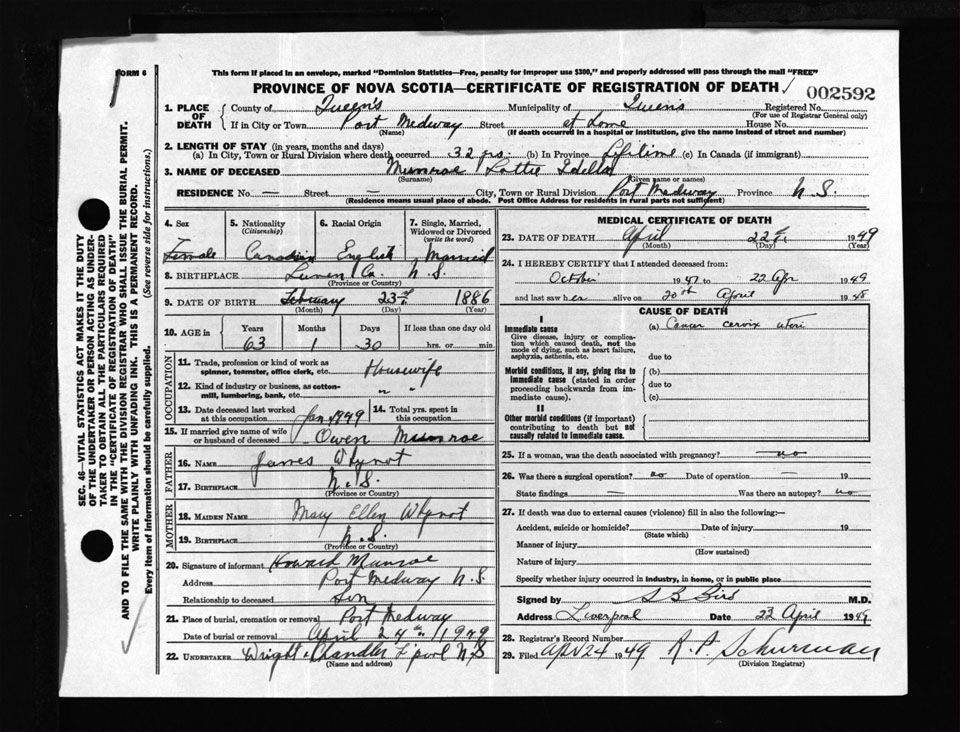 FORM 6
This form if placed in an envelope, marked "Dominion Statistics—Free, penalty for improper use $300," and properly addressed will pass through the mail "FREE"
PROVINCE OF NOVA SCOTIA—CERTIFICATE OF REGISTRATION OF DEATH
002592
1. PLACE OF DEATH
County of Queen's Municipality of Queens Registered No.
(For use of Registrar General only)
If in City or Town Port Medway Street at home House No.
(Name) (If death occurred in a hospital or institution, give the name instead of street and number)
2. LENGTH OF STAY (in years, months and days)
(a) In City, Town or Rural Division where death occurred 32 yrs. (b) In Province Lifetime (c) In Canada (if immigrant)
3. NAME OF DECEASED Munroe Lottie Idella
(Surname) (Given name or names)
RESIDENCE No. — Street — City, Town or Rural Division Port Medway Province N.S.
(Residence means usual place of abode. Post Office Address for residents in rural parts not sufficient)
4. Sex
Female
5. Nationality
(Citizenship)
Canadian
6. Racial Origin
English
7. Single, Married, Widowed or Divorced
(write the word)
Married
8. BIRTHPLACE Lunen Co. N.S.
(Province or Country)
9. DATE OF BIRTH February 23rd 1886
(Month) (Day) (Year)
10. AGE in
Years Months Days If less than one day old
63 1 30 hrs. or min.
OCCUPATION
11. Trade, profession or kind of work as spinner, teamster, office clerk, etc. Housewife
12. Kind of industry or business, as cotton-mill, lumbering, bank, etc. " "
13. Date deceased last worked at this occupation Jan 1949
14. Total yrs. spent in this occupation
15. If married give name of wife or husband of deceased Owen Munroe
FATHER
16. NAME James Whynot
17. BIRTHPLACE N.S.
(Province or Country)
MOTHER
18. MAIDEN NAME Mary Ellen Whynot
19. BIRTHPLACE N.S.
(Province or Country)
20. Signature of informant Howard Munroe
Address Port Medway N.S.
Relationship to deceased Son
21. Place of burial, cremation or removal Port Medway
Date of burial or removal April 24th 1949
22. UNDERTAKER Wright & Chandler L'pool N.S
(Name and address)
MEDICAL CERTIFICATE OF DEATH
23. DATE OF DEATH April 22nd 1949
(Month) (Day) (Year)
24. I HEREBY CERTIFY that I attended deceased from:
October 1947 to 22 Apr 1949
and last saw her alive on 20th April 1948
CAUSE OF DEATH
I
Immediate cause
Give disease, injury or complication which caused death, not the mode of dying, such as heart failure, asphyxia, asthenia, etc.
(a) Cancer cervix uteri
due to
Morbid conditions, if any, giving rise to immediate cause (stated in order proceeding backwards from immediate cause).
(b)
due to
(c)
II
Other morbid conditions (if important) contributing to death but not causally related to immediate cause.
25. If a woman, was the death associated with pregnancy? no
26. Was there a surgical operation? no Date of operation — 19
State findings — Was there an autopsy? no
27. If death was due to external causes (violence) fill in also the following:—
Accident, suicide or homicide? Date of injury 19
(State which)
Manner of injury
(How sustained)
Nature of injury
Specify whether injury occurred in industry, in home, or in public place
Signed by S B Bird M.D.
Address Liverpool Date 23 April 1949
28. Registrar's Record Number
29. Filed Apr 24 1949 R. P. Schurman
(Division Registrar)
SEC. 46—VITAL STATISTICS ACT MAKES IT THE DUTY
OF THE UNDERTAKER OR PERSON ACTING AS UNDER-
TAKER TO OBTAIN ALL THE PARTICULARS REQUIRED
IN THE "CERTIFICATE OF REGISTRATION OF DEATH"
AND TO FILE THE SAME WITH THE DIVISION REGISTRAR WHO SHALL ISSUE THE BURIAL PERMIT.
WRITE PLAINLY WITH UNFADING INK. THIS IS A PERMANENT RECORD.
Every item of information should be carefully supplied. (See reverse side for instructions.)